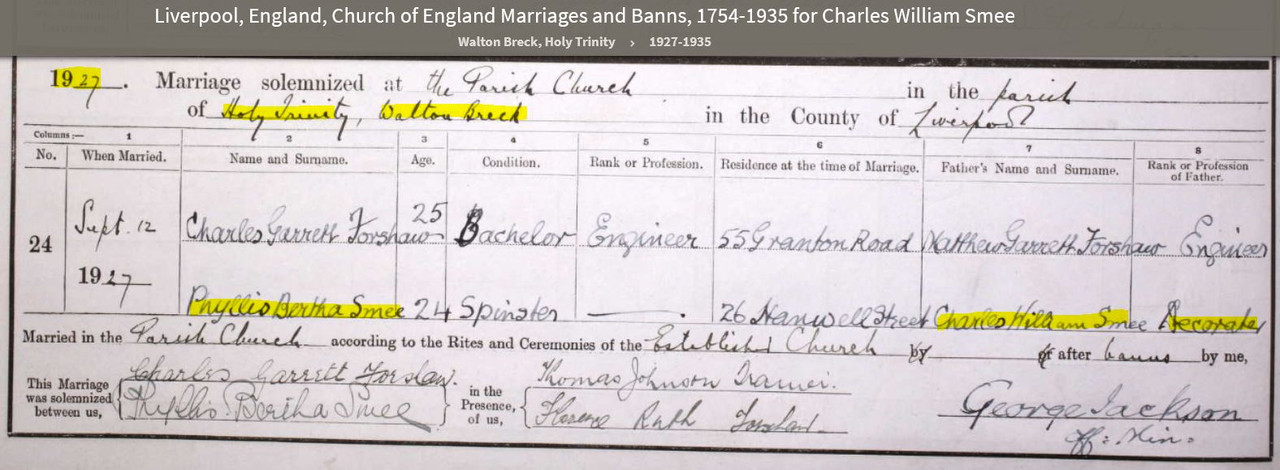 Liverpool, England, Church of England Marriages and Banns, 1754-1935 for Charles William Smee
Walton Breck, Holy Trinity › 1927-1935
1927. Marriage solemnized at the Parish Church in the parish
of Holy Trinity, Walton Breck in the County of Liverpool
Columns:— 1 2 3 4 5 6 7 8
No. When Married. Name and Surname. Age. Condition. Rank or Profession. Residence at the time of Marriage. Father's Name and Surname. Rank or Profession of Father.
24 Sept. 12 1927 Charles Garrett Forshaw 25 Bachelor Engineer 55 Granton Road Matthew Garrett Forshaw Engineer
Phyllis Bertha Smee 24 Spinster ——. 26 Hanwell Street Charles William Smee Decorator
Married in the Parish Church according to the Rites and Ceremonies of the Established Church by or after banns by me,
This Marriage was solemnized between us, Charles Garrett Forshaw. in the Presence, of us, Thomas Johnson
Phyllis Bertha Smee Florence Ruth Forshaw George Jackson
Off: Min: